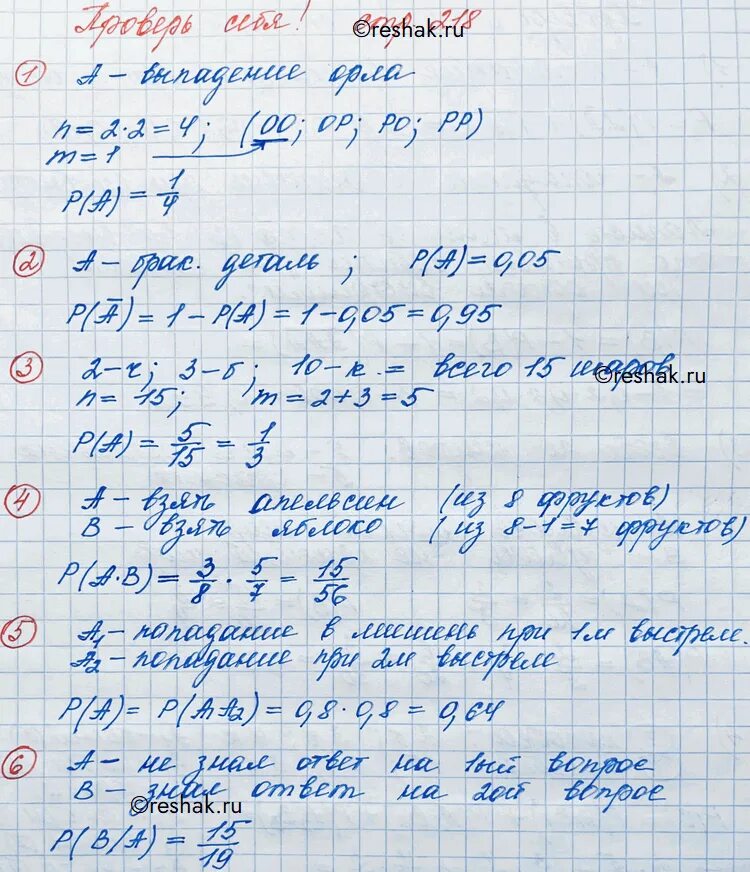 Проверь себя! стр. 218
©reshak.ru
① А – выпадение орла
n = 2·2 = 4; (ОО; ОР; РО; РР)
m = 1
P(A) = 1/4
② А – брак. деталь; P(A) = 0,05
P(Ā) = 1 – P(A) = 1 – 0,05 = 0,95
③ 2–ч; 3–б; 10–к. = всего 15 шаров
©reshak.ru
n = 15; m = 2 + 3 = 5
P(A) = 5/15 = 1/3
④ А – взять апельсин (из 8 фруктов)
В – взять яблоко (из 8–1=7 фруктов)
P(A·B) = 3/8 · 5/7 = 15/56
⑤ А₁ – попадание в мишень при 1м выстреле.
А₂ – попадание при 2м выстреле
P(A) = P(A₁A₂) = 0,8·0,8 = 0,64
⑥ А – не знал ответ на 1ый вопрос
В – знал ответ на 2ой вопрос
©reshak.ru
P(B/A) = 15/19